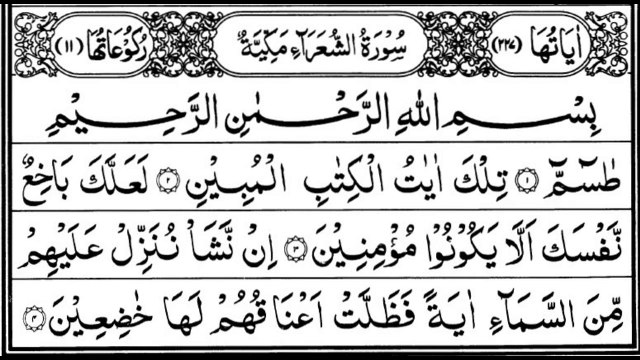 اٰيَاتُهَا (٢٢٧) سُوْرَةُ الشُّعَرَآءِ مَكِّيَّةٌ رُكُوْعَاتُهَا (١١)
بِسْمِ اللّٰهِ الرَّحْمٰنِ الرَّحِيْمِ
طٰسٓمّٓ ۝١ تِلْكَ اٰيٰتُ الْكِتٰبِ الْمُبِيْنِ ۝٢ لَعَلَّكَ بَاخِعٌ
نَّفْسَكَ اَلَّا يَكُوْنُوْا مُؤْمِنِيْنَ ۝٣ اِنْ نَّشَاْ نُنَزِّلْ عَلَيْهِمْ
مِّنَ السَّمَآءِ اٰيَةً فَظَلَّتْ اَعْنَاقُهُمْ لَهَا خٰضِعِيْنَ ۝٤